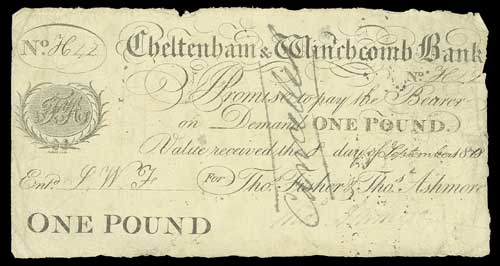 No. H 42 Cheltenham & Winchcomb Bank
No. H 42
I Promise to pay the Bearer
on Demand ONE POUND.
Value received the 8 day of September 18
Entd. J. W. F. For Thos. Fisher & Thos. Ashmore
ONE POUND